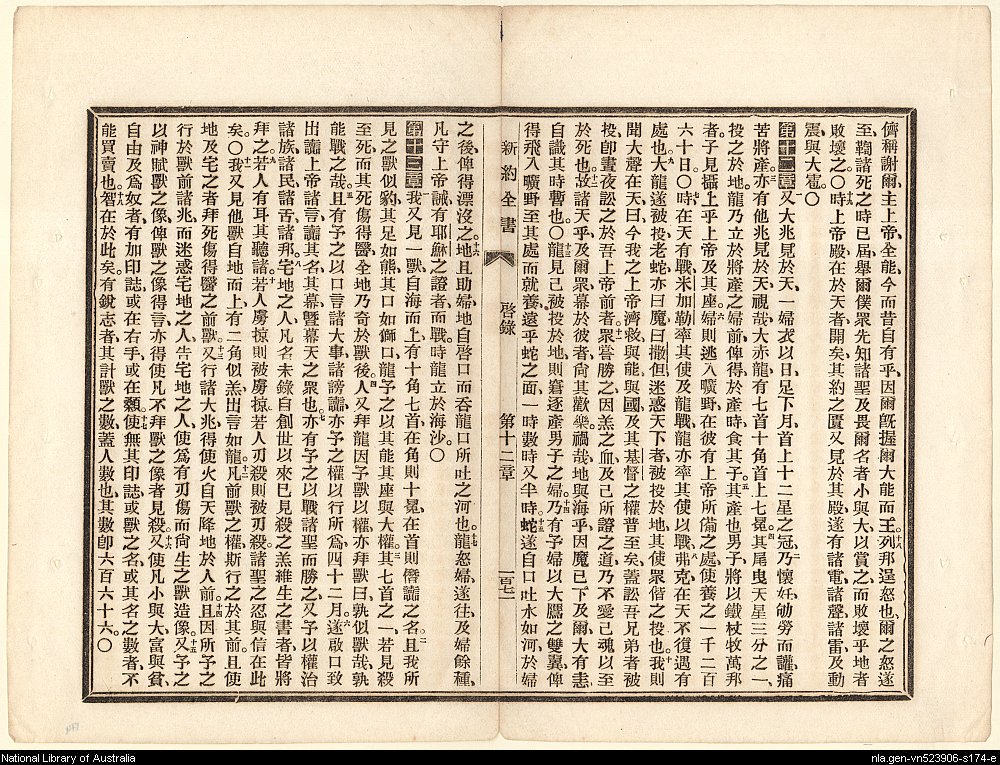 儕稱謝爾主上帝全能今而昔自有乎因爾旣握爾大能而王十八列邦逞怒也爾之怒遂
至鞫諸死之時已屆舉爾僕眾先知諸聖及畏爾名者小與大以賞之而敗壞乎地者
敗壞之〇十九時上帝殿在於天者開矣其約之匱又見於其殿遂有諸電諸聲諸雷及動
震與大雹〇
第十二章一又大兆見於天一婦衣以日足下月首上十二星之冠二乃懷妊劬勞而讙痛
苦將產三亦有他兆見於天視哉大赤龍有七首十角首上七冕四其尾曳天星三分之一
投之於地龍乃立於將產之婦前俾得於產時食其子五其產也男子將以鐵杖牧萬邦
者子見攝上乎上帝及其座六婦則逃入曠野在彼有上帝所備之處使養之一千二百
六十日〇七時在天有戰米加勒率其使及龍戰龍亦率其使以戰八弗克在天不復遇有
處也九大龍遂被投老蛇亦曰魔曰撒但迷惑天下者被投於地其使眾偕之投也十我則
聞大聲在天曰今我之上帝濟救與能與國及其基督之權普至矣蓋訟吾兄弟者被
投卽晝夜訟之於吾上帝前者十一眾嘗勝之因羔之血及己所證之道乃不愛己魂以至
於死也十二故諸天乎及爾眾幕於彼者尙其歡樂禍哉地與海乎因魔已下及爾大恚
自識其時暫也〇十三龍見己被投於地則窘逐產男子之婦十四乃有予婦以大鷹之雙翼俾
得飛入曠野至其處而就養遠乎蛇之面一時數時又半時十五蛇遂自口吐水如河於婦
新約全書 啓錄 第十二章 一百七二
之後俾得漂沒之十六地且助婦地自啓口而吞龍口所吐之河也十七龍怒婦遂往及婦餘種
凡守上帝誡有耶穌之證者而戰時龍立於海沙〇
第十三章一我又見一獸自海而上有十角七首在角則十冕在首則僭讟之名二且我所
見之獸似豹其足如熊其口如獅口龍予之以其能其座與大權三其七首之一若見殺
至死而其死傷得醫全地乃奇於獸後四人又拜龍因予獸以權亦拜獸曰孰似獸哉孰
能戰之哉五且有予之以口言諸大事諸謗讟亦予之權以行所爲四十二月六遂啟口致
出讟上帝諸言讟其名其幕曁幕天之眾也七亦有予之以戰諸聖而勝之又予以權治
諸族諸民諸舌諸邦八宅地之人凡名未錄自創世以來巳見殺之羔維生之書者皆將
拜之九若人有耳其聽諸十若人虜掠則被虜掠若人刃殺則被刃殺諸聖之忍與信在此
矣〇十一我又見他獸自地而上有二角似羔出言如龍十二凡前獸之權斯行之於其前且使
地及宅之者拜死傷得醫之前獸十三又行諸大兆得使火自天降地於人前十四且因所予之
行於獸前諸兆而迷惑宅地之人告宅地之人使爲有刃傷而尙生之獸造像十五又予之
以神賦獸之像俾獸之像得言亦得使凡不拜獸之像者見殺十六又使凡小與大富與貧
自由及爲奴者有加印誌或在右手或在顙十七使無其印誌或獸之名或其名之數者不
能買賣也十八智在於此矣有銳志者其計獸之數蓋人數也其數卽六百六十六〇
National Library of Australia
nla.gen-vn523906-s174-e